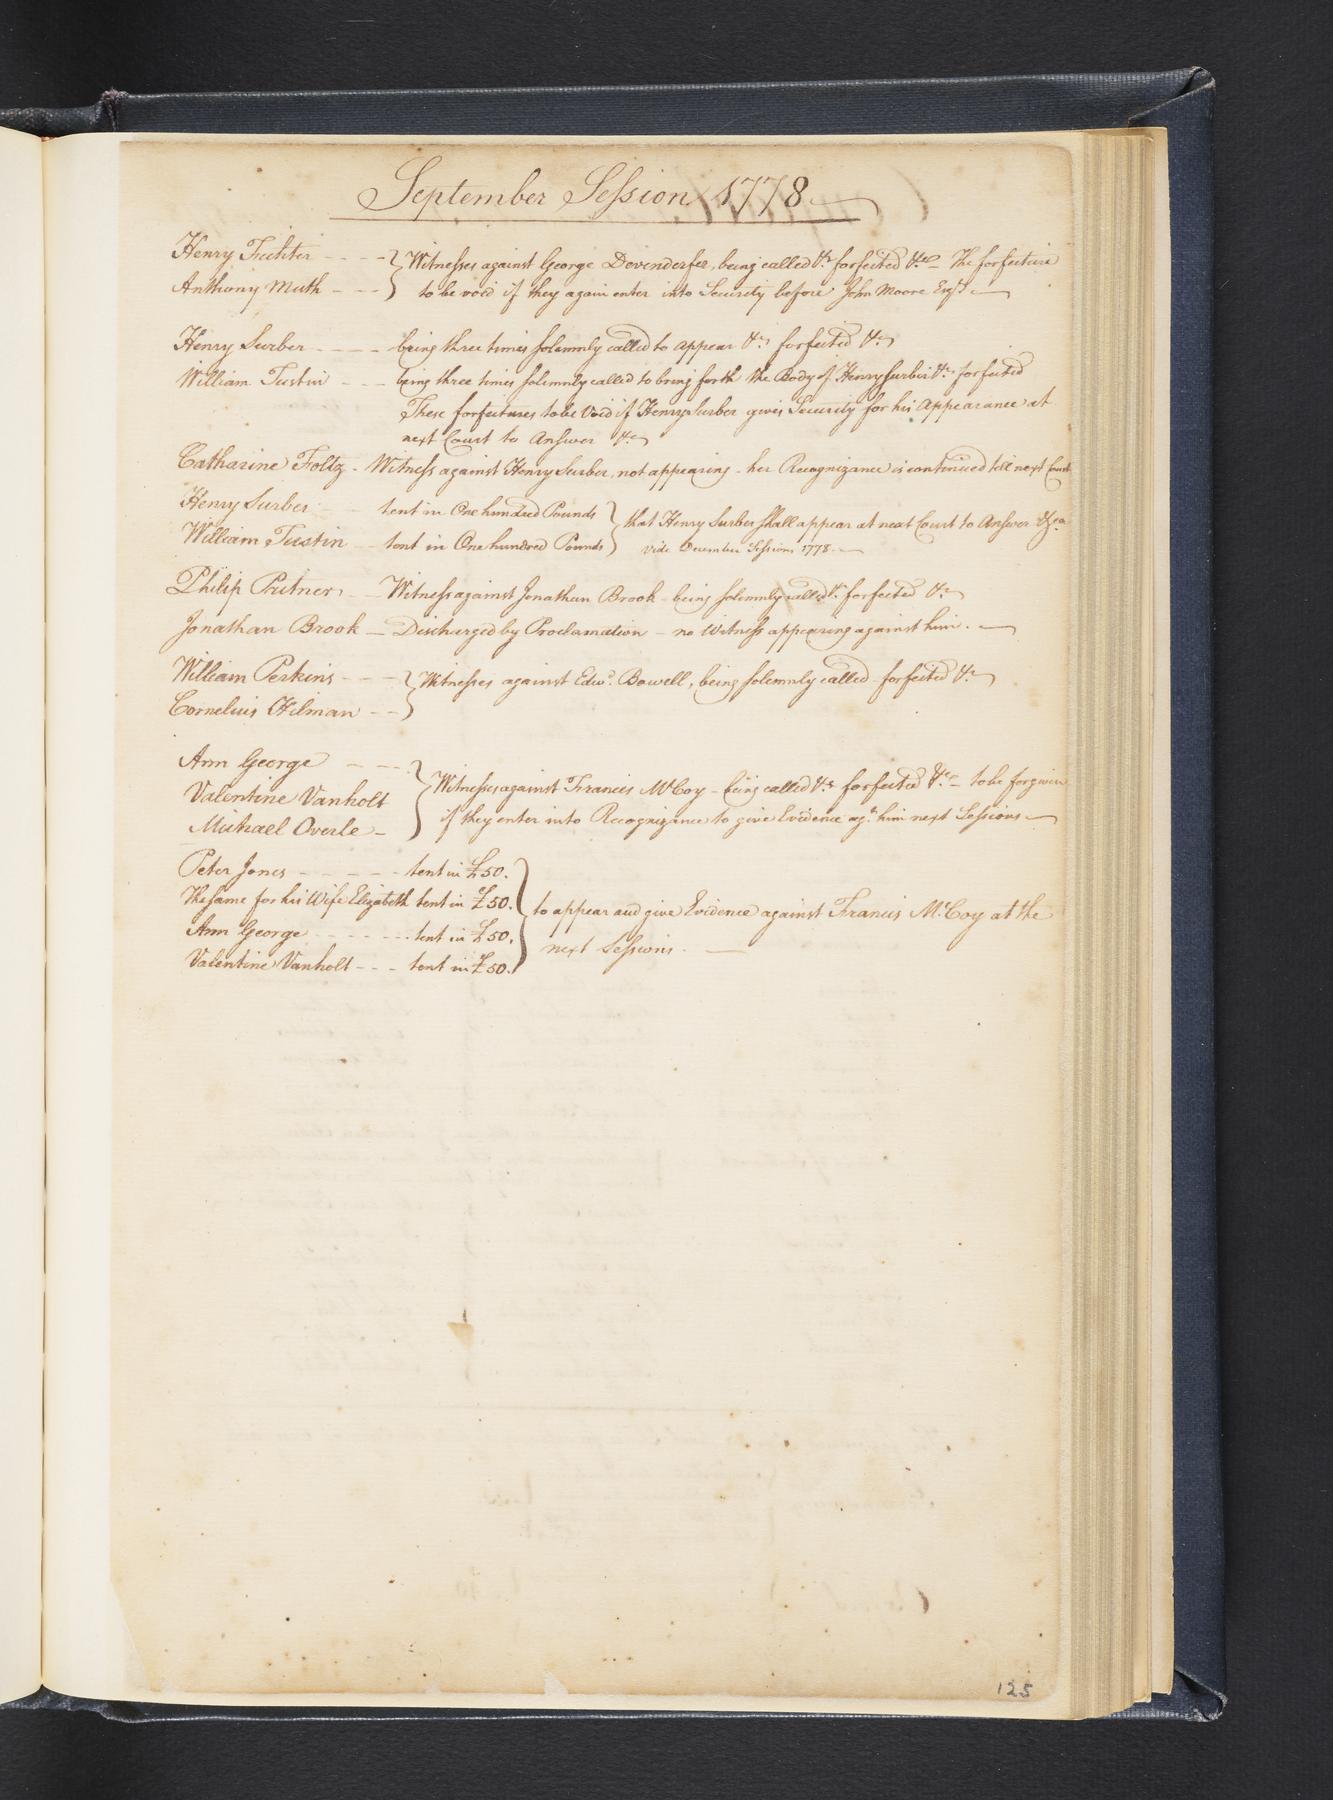 September Session 1778
Henry Fichter - - - - Witnesses against George Dovinderfer, being called &c. forfeited &c. - The forfeiture
Anthony Muth - - - to be void if they again enter into Security before John Moore Esqr.
Henry Surber - - - - being three times solemnly called to appear &c. forfeited &c.
William Tustin - - - being three times solemnly called to bring forth the Body of Henry Surber &c. forfeited
These forfeitures to be void if Henry Surber gives Security for his Appearance at
next Court to Answer &c.
Catharine Foltz - Witness against Henry Surber, not appearing - her Recognizance is continued till next Court
Henry Surber tent in One hundred Pounds that Henry Surber shall appear at next Court to Answer &ca.
William Tustin tent in One hundred Pounds vide December Sessions 1778.
Philip Pritner - - Witness against Jonathan Brook - being solemnly called &c. forfeited &c.
Jonathan Brook - Discharged by Proclamation - no Witness appearing against him.
William Perkins - - - Witnesses against Edwd. Bowell, being solemnly called - forfeited &c.
Cornelius Hilman - -
Ann George - - -
Valentine Vanholt Witnesses against Francis McCoy - being called &c. forfeited &c. - to be forgiven
Michael Overle - if they enter into Recognizance to give Evidence agt. him next Sessions
Peter Jones - - - - - tent in £50.
The same for his Wife Elizabeth tent in £50. to appear and give Evidence against Francis McCoy at the
Ann George - - - - - - - tent in £50. next Sessions.
Valentine Vanholt - - - tent in £50.
125